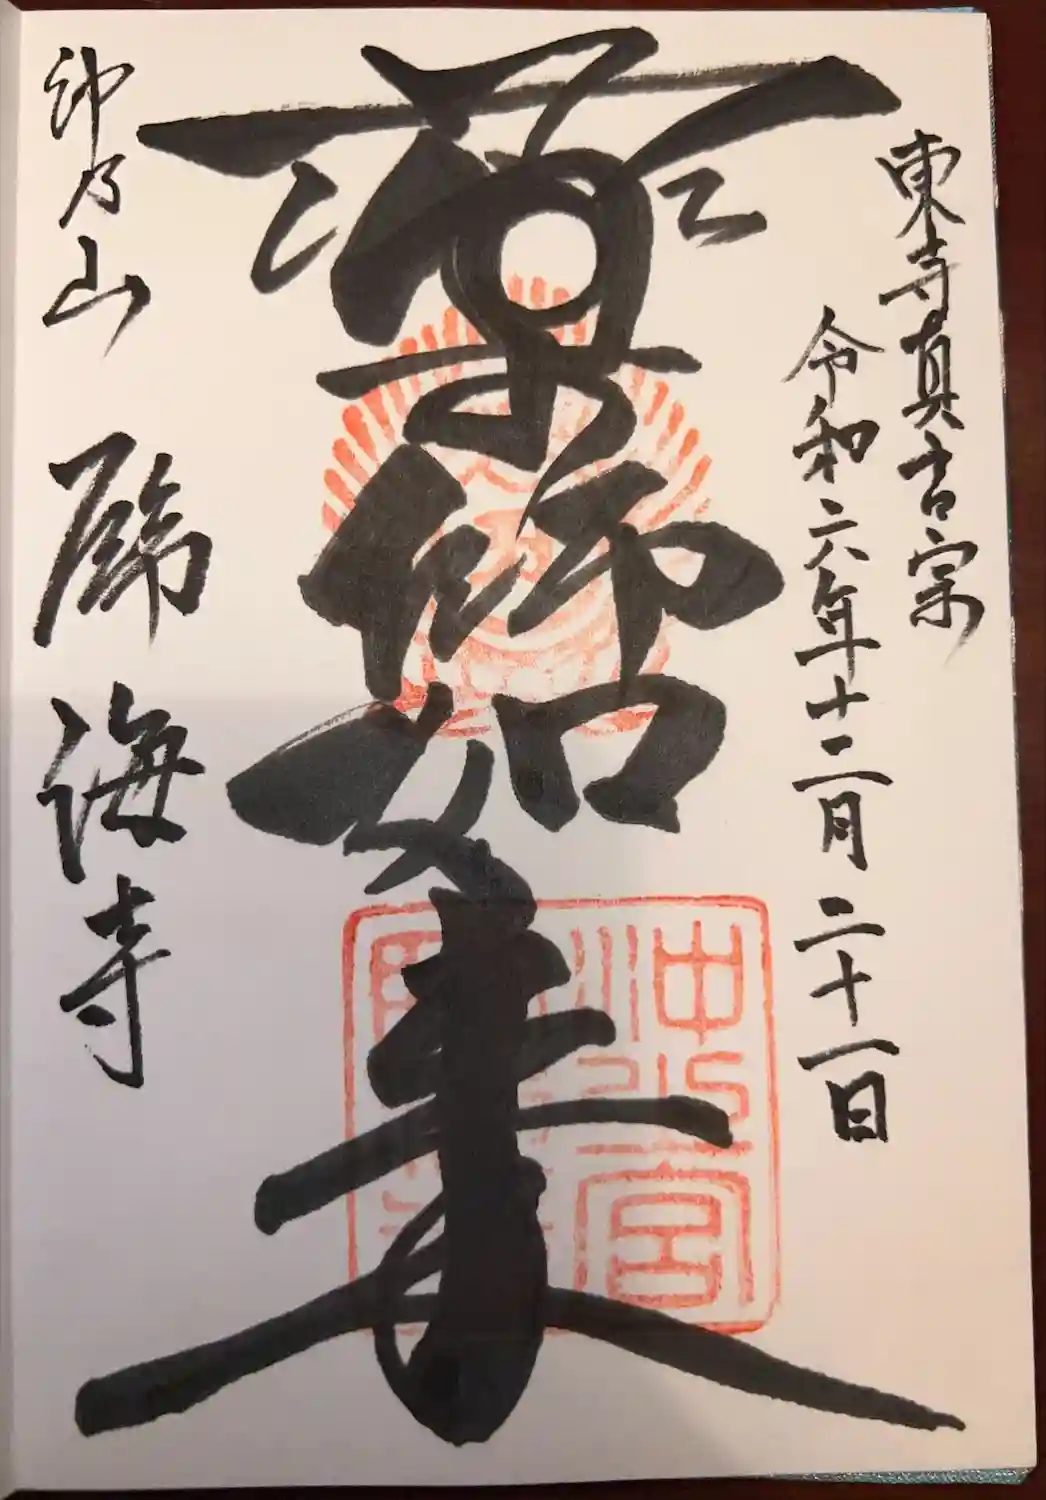 東寺真言宗
令和六年十二月二十一日
薬師如来
乃山 海寺